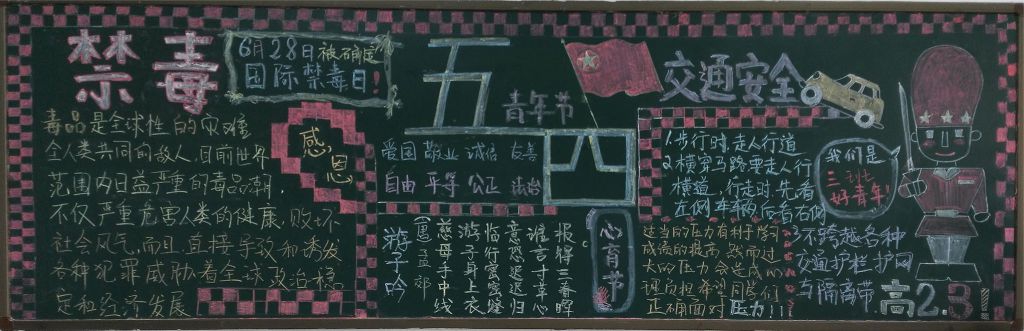 禁毒
6月28日被确定
国际禁毒日!
毒品是全球性的灾难
全人类共同的敌人,目前世界
范围内日益严重的毒品潮,
不仅严重危害人类的健康,败坏
社会风气,而且直接导致和诱发
各种犯罪威胁着全球政治稳
定和经济发展
感
恩
五
四
青年节
爱国 敬业 诚信 友善
自由 平等 公正 法治
游子吟
(唐)孟郊
慈母手中线
游子身上衣
临行密密缝
意恐迟迟归
谁言寸草心
报得三春晖
心育节
交通安全
1.步行时,走人行道
2.横穿马路要走人行
横道,行走时,先看
左侧车辆后看右侧
我们是
三
好青年!
过当的压力有利于学习
成绩的提高,然而过
大的压力会造成心
理
正确面对压力!!
3不跨越各种
交通护栏护网
与隔离带
高2.3!